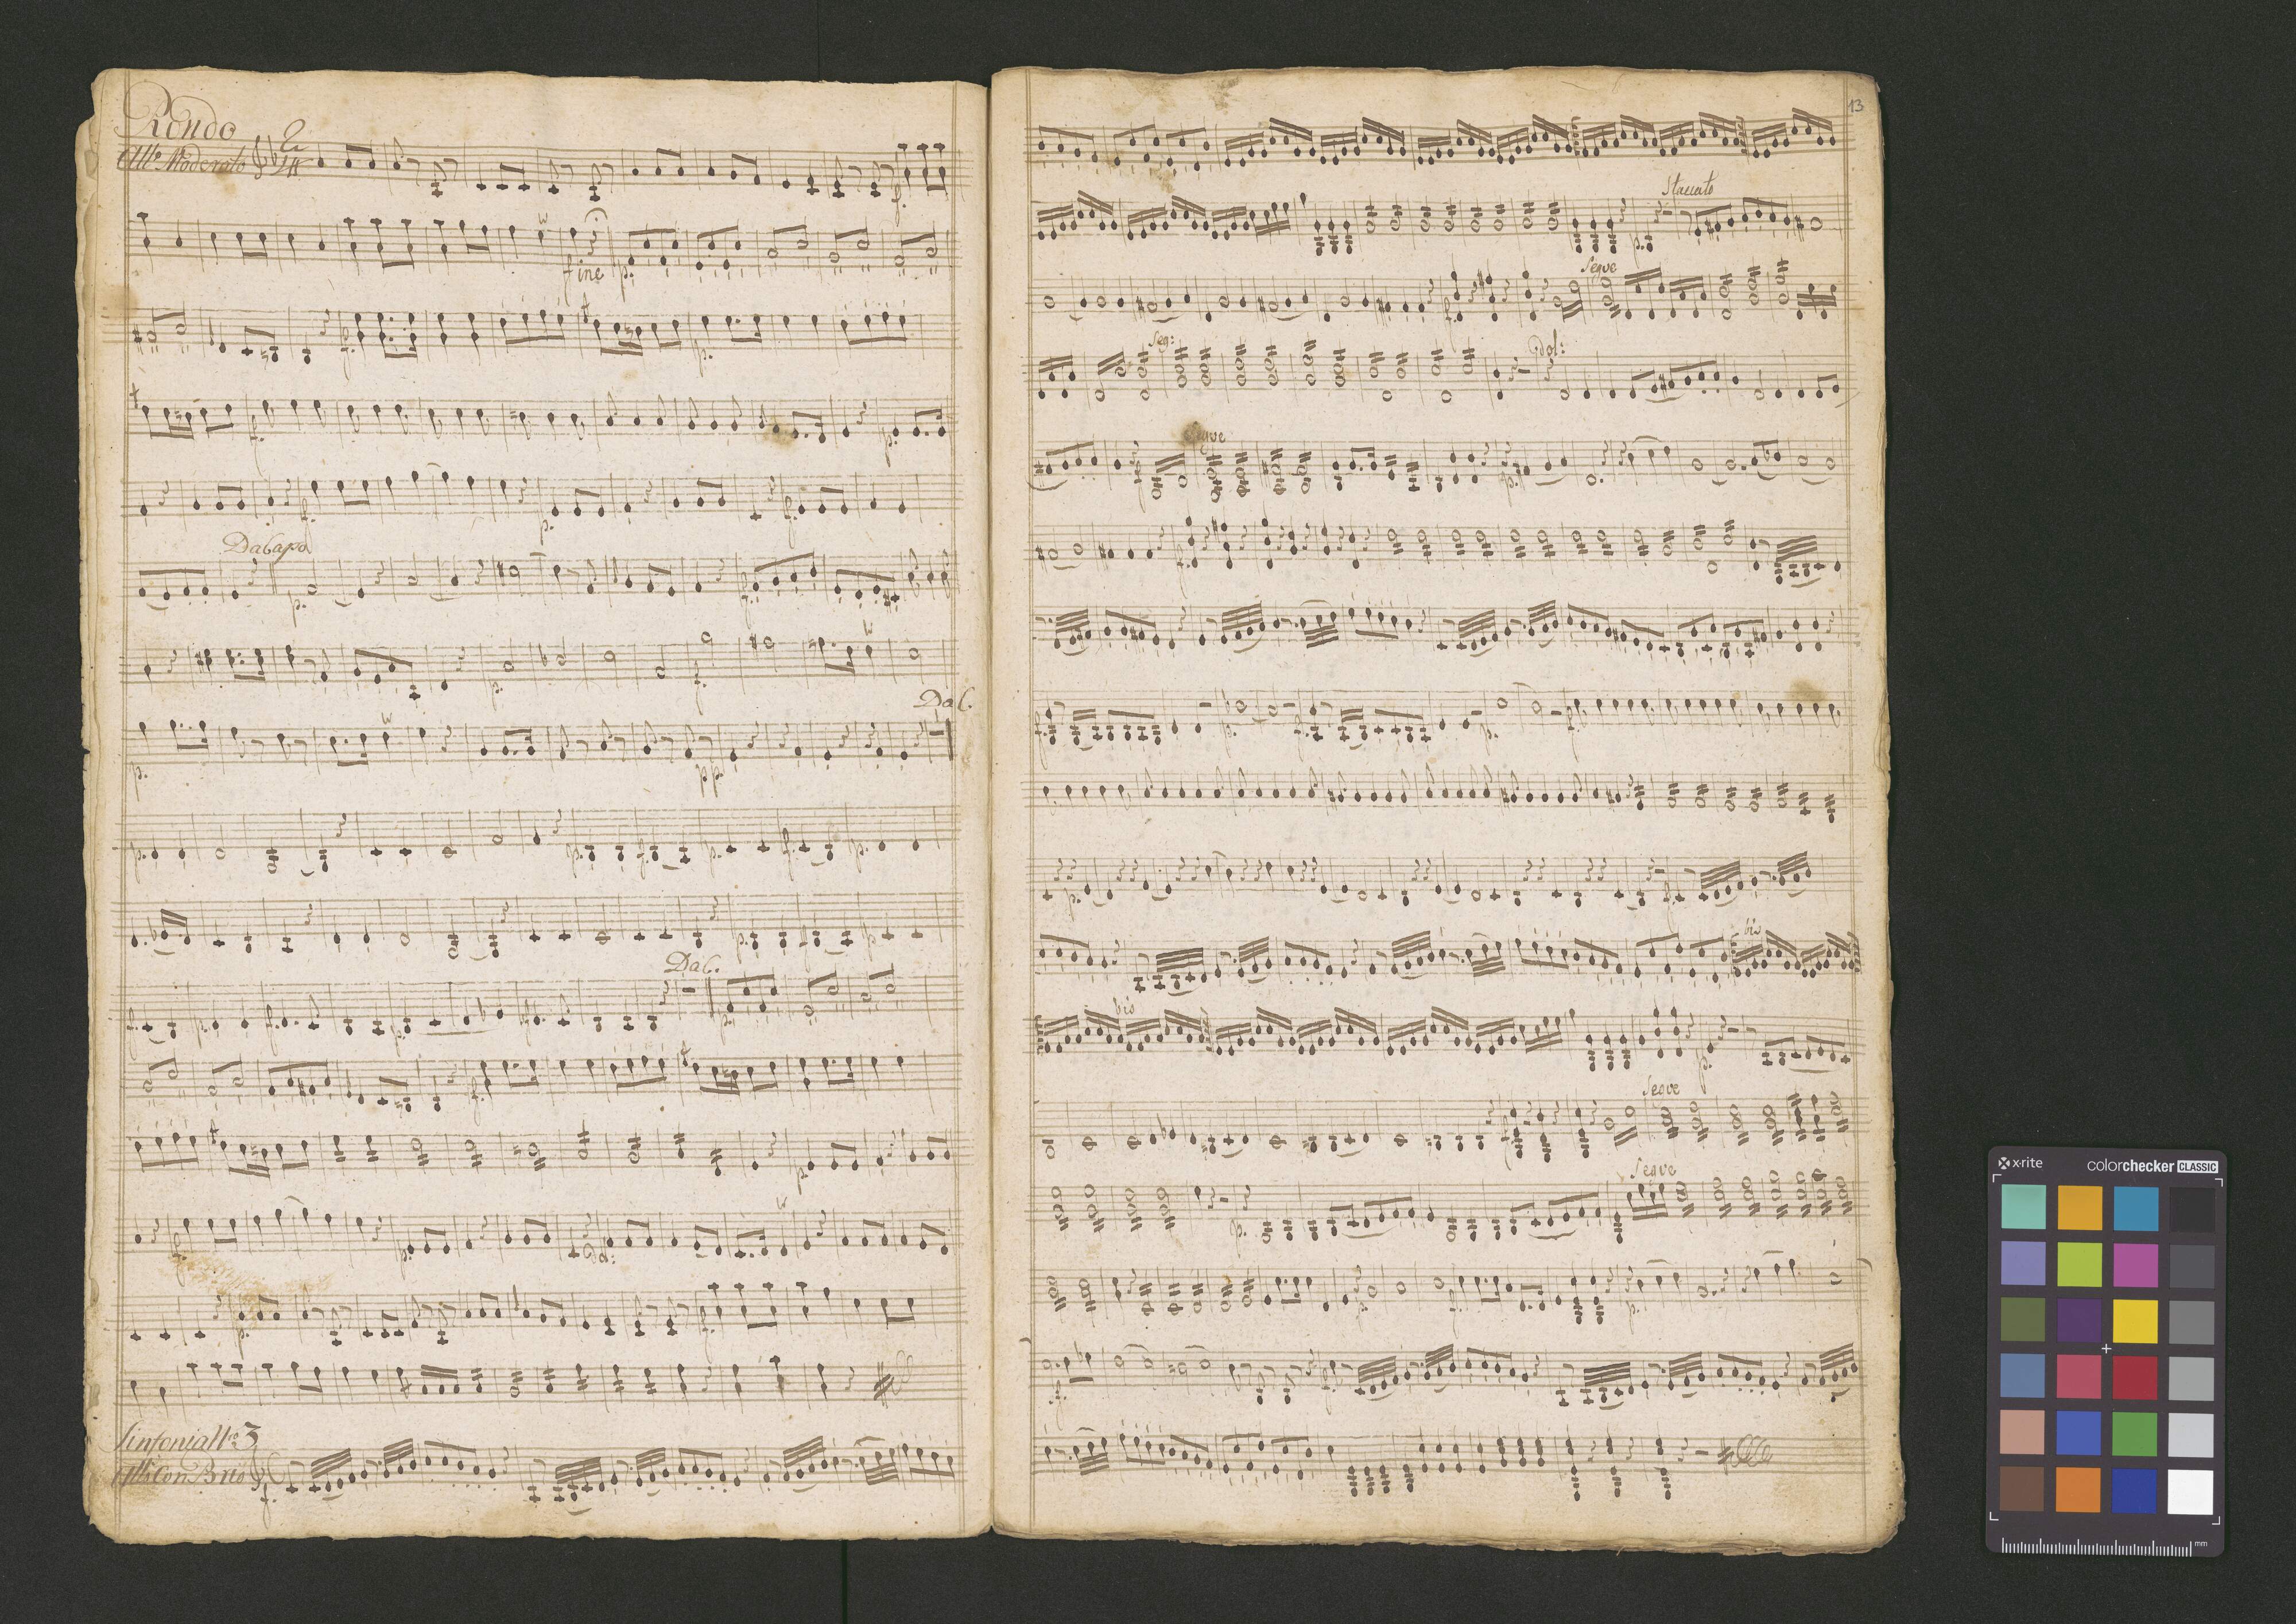 Rondo
All.º Moderato 2/4
f.
fine p.
f. p.
f. p.
f. p. f.
Da Capo
p. f.
p. f.
Da C.
p. pp.
p. p. f. p. f. p.
p. f. p.
Da C.
f. p. f. p. f. p.
f.
p.
f. p. Dol:
p. f.
Sinfonia II.º 3
All.º Con Brio f.
13
Staccato
p.
Segue
f.
Seg: Dol:
Segue
p.
f.
f. p. f. p. f.
p. f.
bis
bis
p.
Segue
f.
Segue
p.
p. f. p.
f. f.
x-rite colorchecker CLASSIC
mm